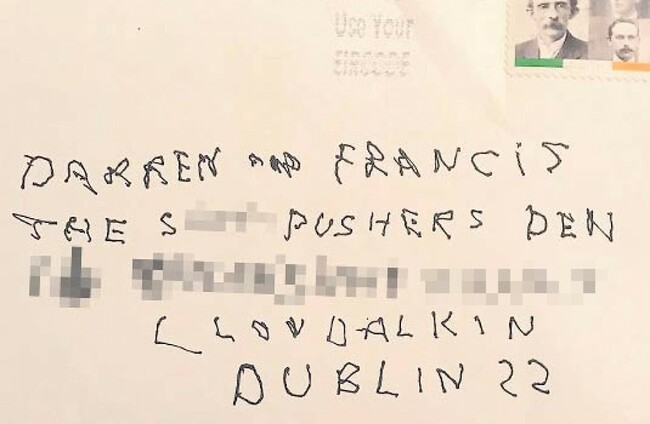 Use Your
EIRCODE
DARREN AND FRANCIS
THE S PUSHERS DEN
CLONDALKIN
DUBLIN 22